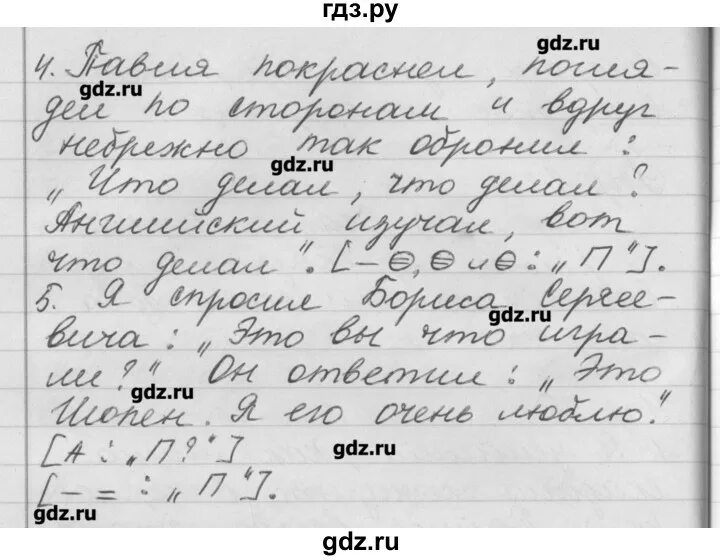 гдз.ру
4. Павля покраснел, погля-
дел по сторонам и вдруг
небрежно так обронил:
„Что делал, что делал?
Английский изучал, вот
что делал“. [–⊖,⊖ и ⊖: „П“].
5. Я спросил Бориса Сергее-
вича: „Это вы что игра-
ли?“ Он ответил: „Это
Шопен. Я его очень люблю.“
[А: „П?“]
[– = : „П“].
gdz.ru
gdz.ru
gdz.ru
gdz.ru
gdz.ru
gdz.ru
gdz.ru
gdz.ru